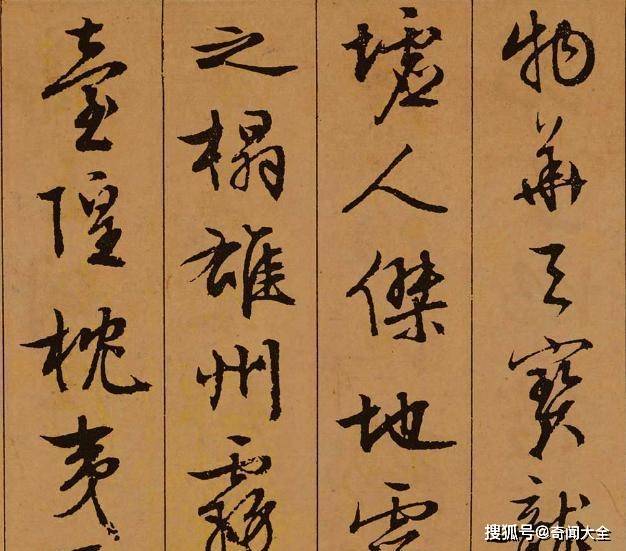 物華天寶龍
墟人傑地靈
之榻雄州霧
臺隍枕夷
搜狐号@奇闻大全